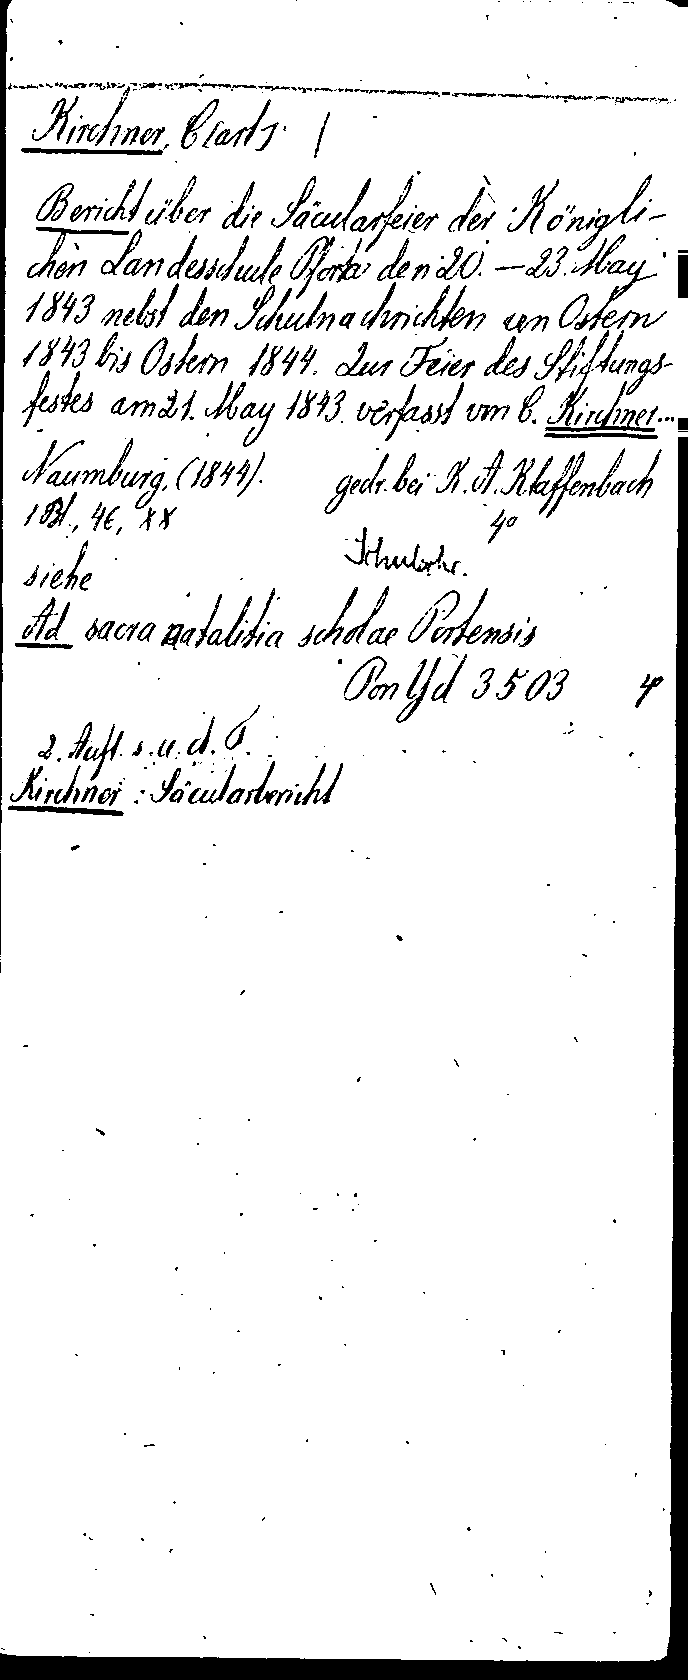 Kirchner, C(arl). /
Bericht über die Säcularfeier der Königli-
chen Landesschule Pforta den 20. – 23. May
1843 nebst den Schulnachrichten von Ostern
1843 bis Ostern 1844. Zur Feier des Stiftungs-
festes am 21. May 1843 verfasst von C. Kirchner...
Naumburg, (1844). gedr. bei K. A. Klaffenbach
1 Bl., 46, XX 4°
Schulschr.
siehe
Ad sacra natalitia scholae Portensis
Pon Yd 3503 4°
2. Aufl. s. u. d. T.
Kirchner : Säcularbericht